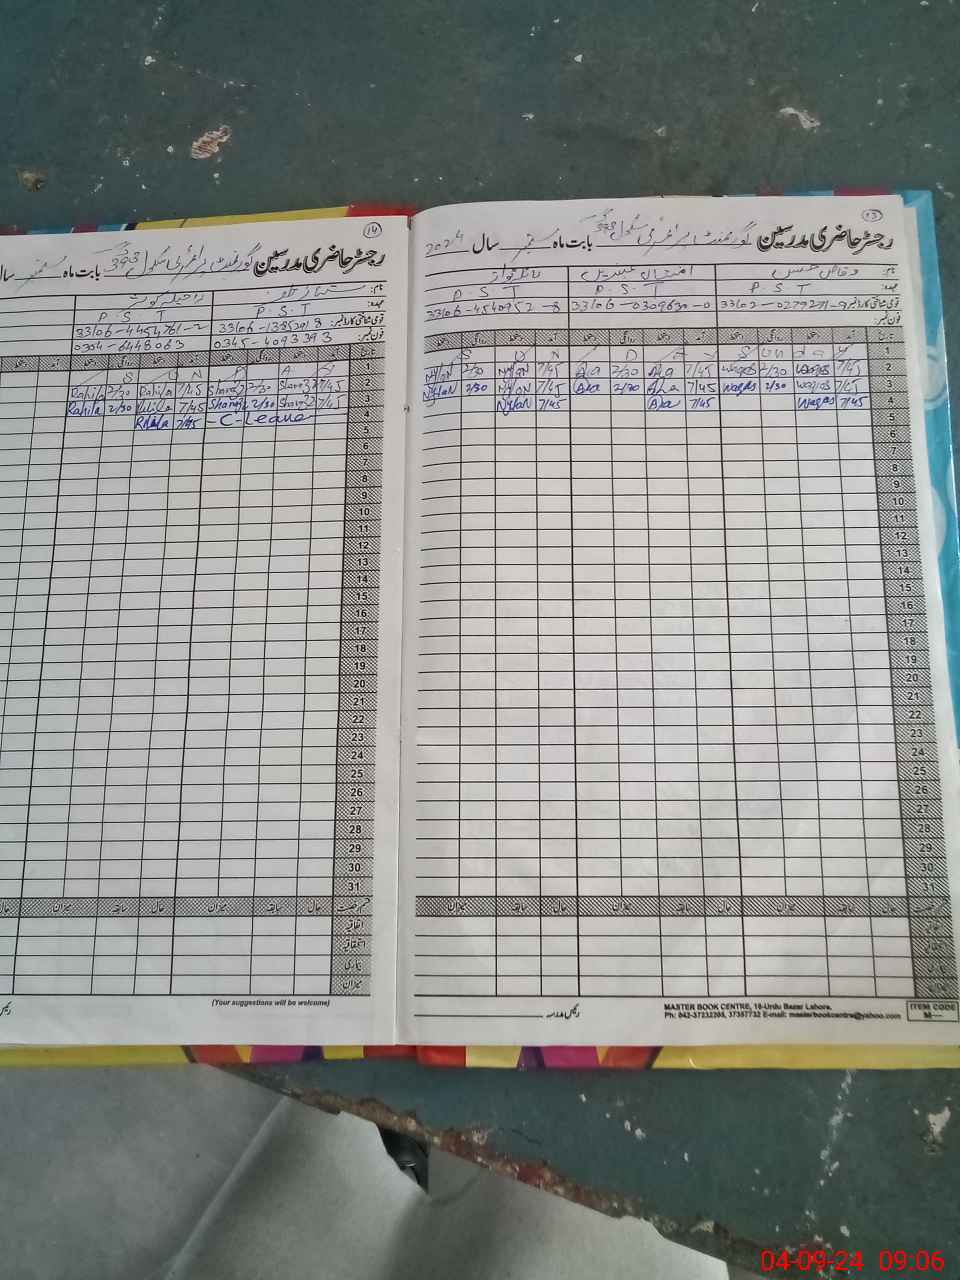 13
رجسٹر حاضری مدرسین گورنمنٹ پرائمری سکول 393 بابت ماہ ستمبر سال 2024
نام:
عہدہ: P.S.T P.S.T P.S.T
قومی شناختی کارڈ نمبر: 33102-0279271-9 33106-0309630-0 33106-4540952-8
فون نمبر:
تاریخ آمد دستخط روانگی دستخط آمد دستخط روانگی دستخط آمد دستخط روانگی دستخط
1 Sunday
2 7/45 Waqas 2/30 Waqas 7/45 2/30 7/45 2/30
3 7/45 Waqas 2/30 Waqas 7/45 2/30 7/45 2/30
4 7/45 Waqas 7/45 7/45
5
6
7
8
9
10
11
12
13
14
15
16
17
18
19
20
21
22
23
24
25
26
27
28
29
30
31
حال سابقہ میزان حال سابقہ میزان حال سابقہ میزان
رئیس مدرسہ
MASTER BOOK CENTRE, 18-Urdu Bazar Lahore.
Ph: 042-37232395, 37357732 E-mail: masterbookcentre@yahoo.com
ITEM CODE
M—
14
رجسٹر حاضری مدرسین گورنمنٹ پرائمری سکول 393 بابت ماہ ستمبر سال
نام:
عہدہ: P.S.T P.S.T
قومی شناختی کارڈ نمبر: 33106-4454761-2
فون نمبر: 0345-4093393 0304-6448063
تاریخ آمد دستخط روانگی دستخط آمد دستخط روانگی دستخط
1 SUNDAY
2 7/45 2/30 7/45 Rahila 2/30 Rahila
3 7/45 2/30 7/45 Rahila 2/30 Rahila
4 -C-Leave 7/45 Rahila
5
6
7
8
9
10
11
12
13
14
15
16
17
18
19
20
21
22
23
24
25
26
27
28
29
30
31
قسم رخصت حال سابقہ میزان حال سابقہ میزان حال
اتفاقیہ
استحقاقیہ
بیماری
میزان
(Your suggestions will be welcome)
رئیس
04-09-24 09:06